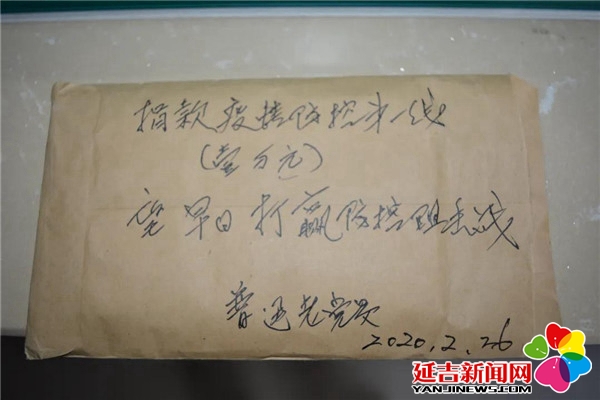 捐款疫情防控第一线
(壹万元)
望早日打赢防控阻击战
普通老党员
2020.2.26
延吉新闻网
YANJINEWS.COM